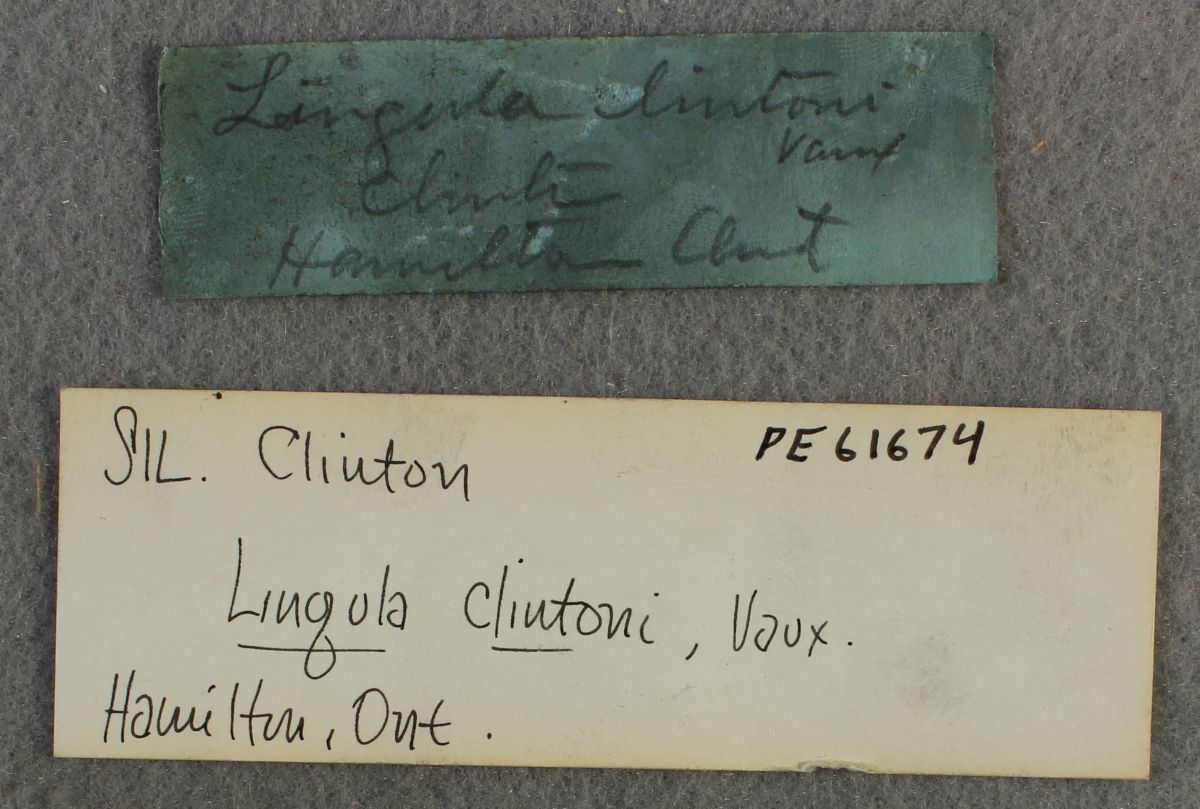 Lingula clintoni
Vaux
Clint
Hamilton Ont
SIL. Clinton
PE61674
Lingula Clintoni, Vaux.
Hamilton, Ont.